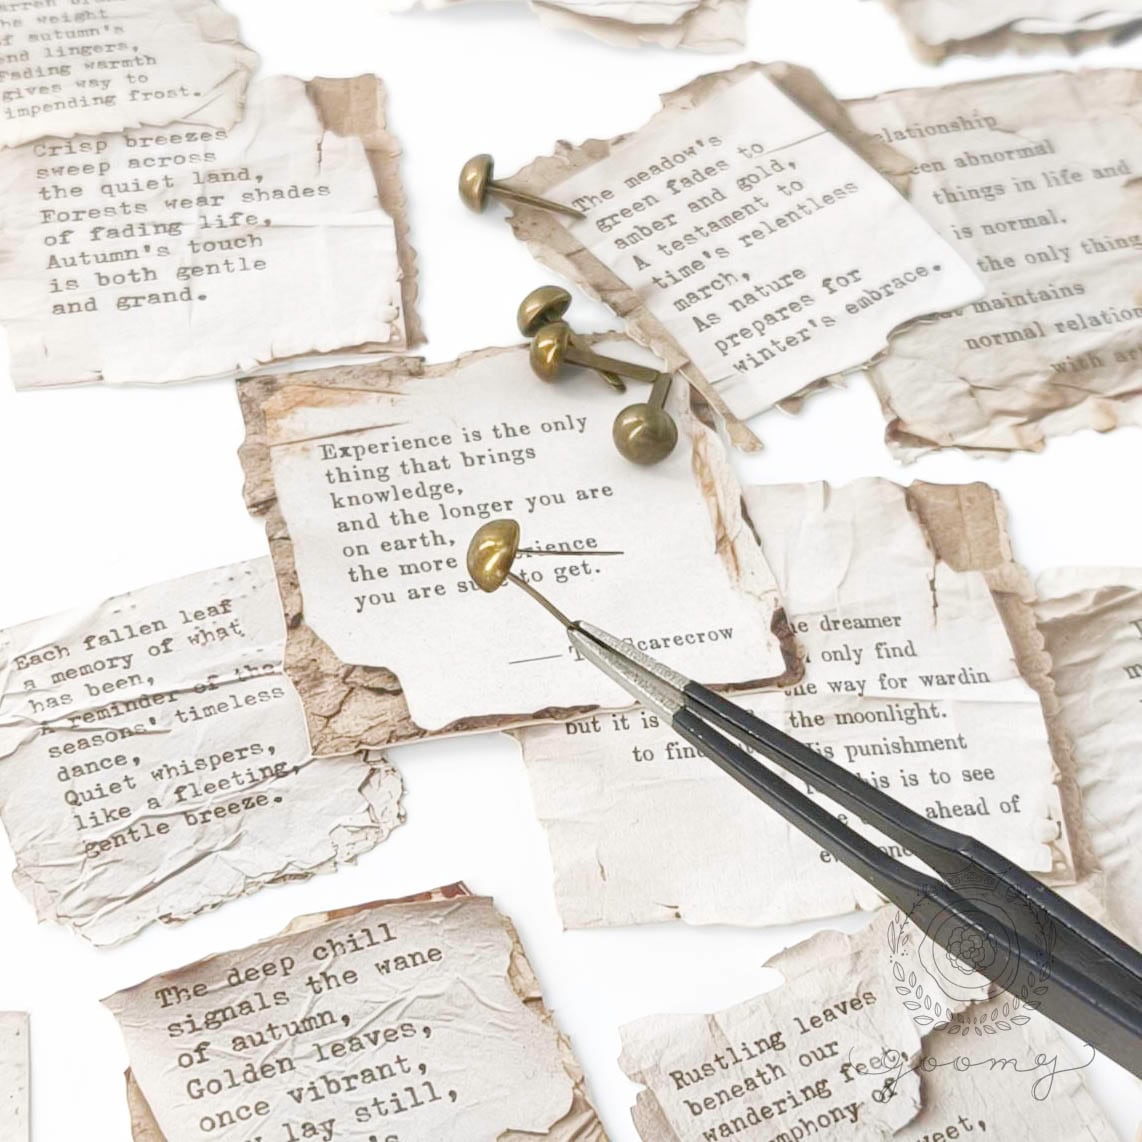 the weight
of autumn's
end lingers,
Fading warmth
gives way to
impending frost.
Crisp breezes
sweep across
the quiet land,
Forests wear shades
of fading life,
Autumn's touch
is both gentle
and grand.
The meadow's
green fades to
amber and gold,
A testament to
time's relentless
march,
As nature
prepares for
winter's embrace.
elationship
een abnormal
things in life and
is normal.
the only thing
maintains
normal relation
with
Experience is the only
thing that brings
knowledge,
and the longer you are
on earth,
the more erience
you are su to get.
— T Scarecrow
Each fallen leaf
a memory of what
has been,
A reminder of the
seasons' timeless
dance,
Quiet whispers,
like a fleeting,
gentle breeze.
e dreamer
only find
the way for wardin
but it is the moonlight.
to find is punishment
his is to see
ahead of
The deep chill
signals the wane
of autumn,
Golden leaves,
once vibrant,
lay still,
Rustling leaves
beneath our
wandering feet,
mphony of
eet,
goomy